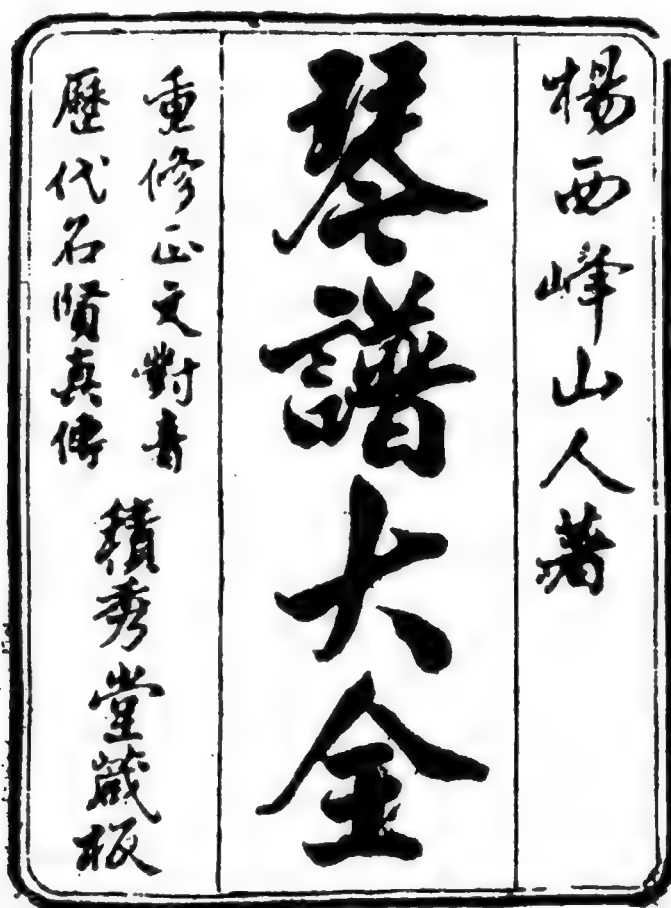 楊西峰山人著
琴譜大全
重修正文對音
歷代名賢真傳
積秀堂藏板